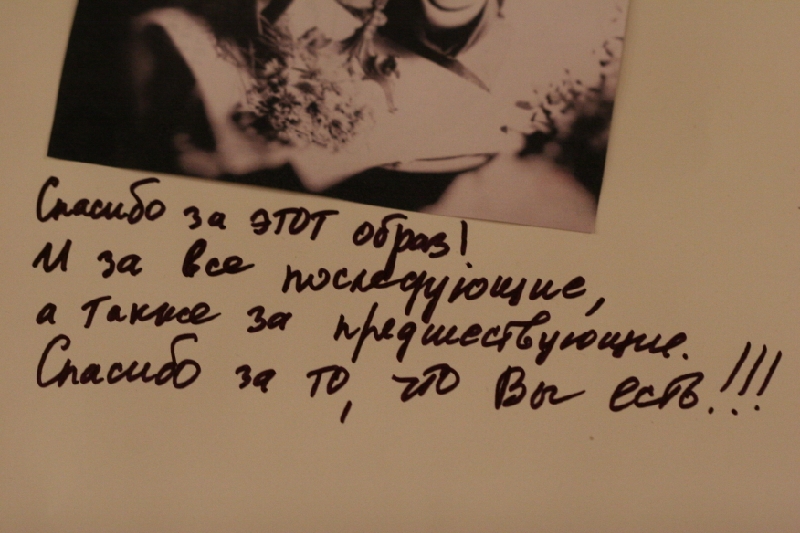 Спасибо за этот образ!
И за все последующие,
а также за предшествующие.
Спасибо за то, что Вы есть!!!